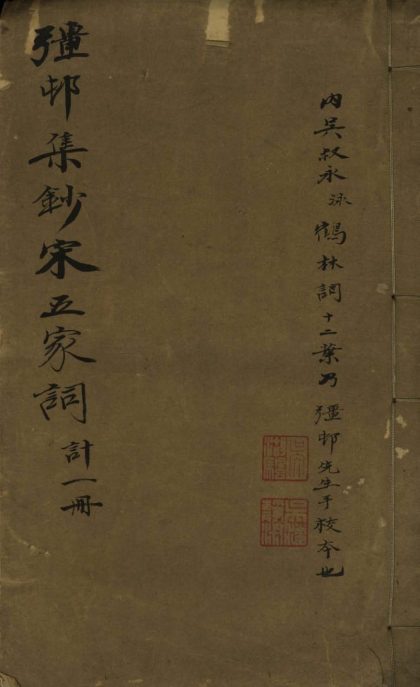 內吳叔永泳鶴林詞十二葉乃彊邨先生手校夲也
彊邨集鈔宋五家詞計一冊